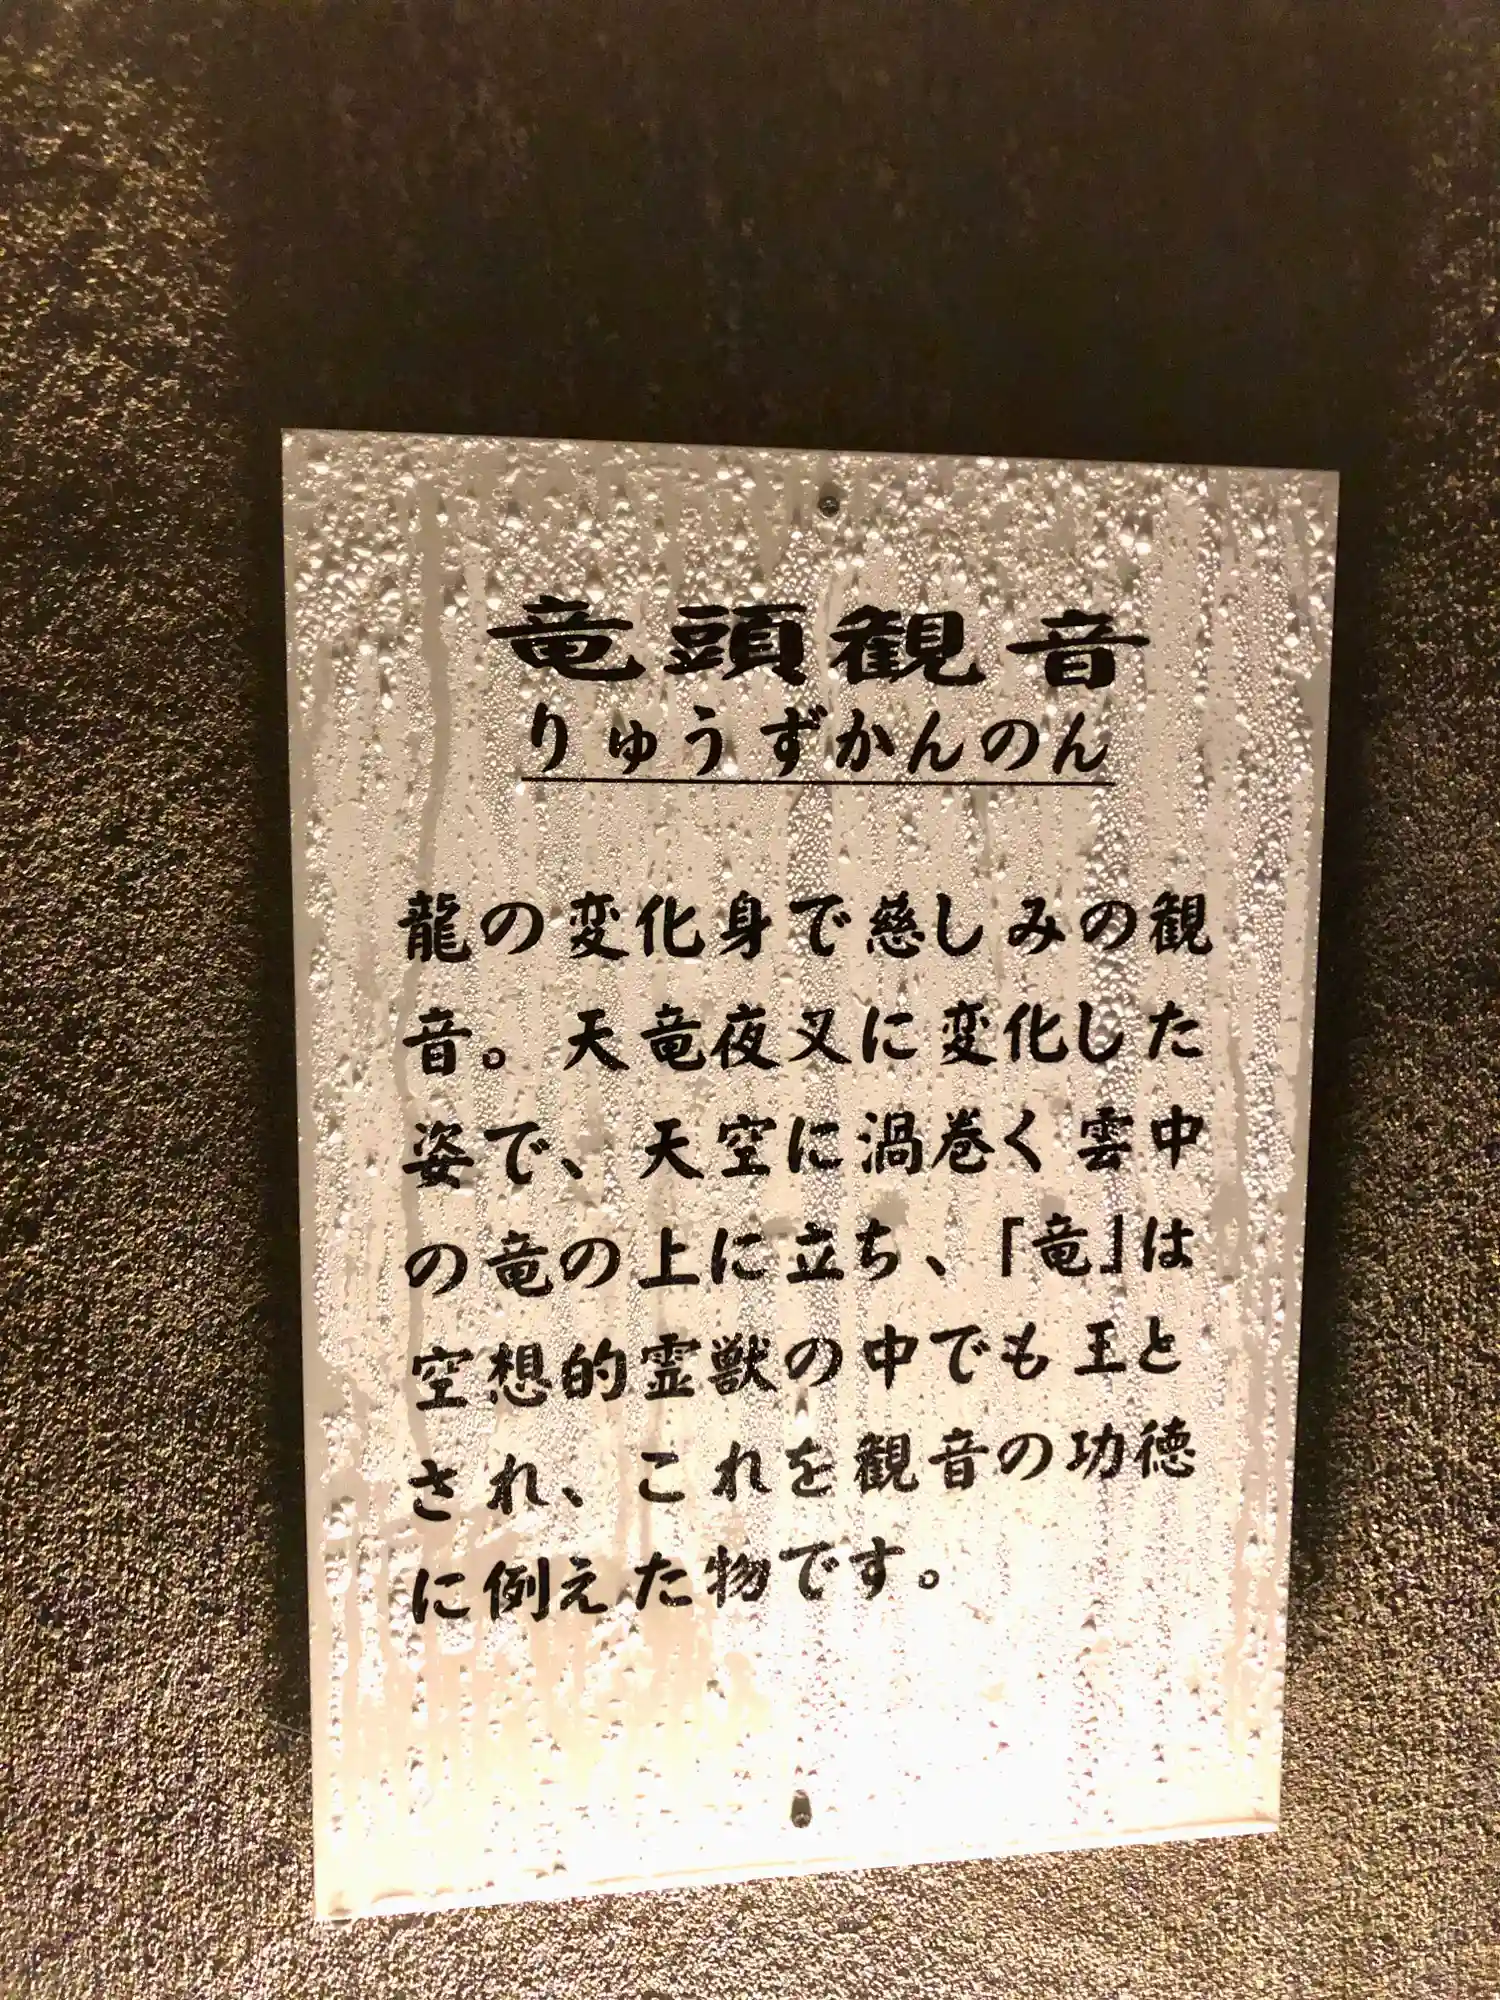 竜頭観音
りゅうずかんのん
龍の変化身で慈しみの観
音。天竜夜叉に変化した
姿で、天空に渦巻く雲中
の竜の上に立ち、「竜」は
空想的霊獣の中でも王と
され、これを観音の功徳
に例えた物です。